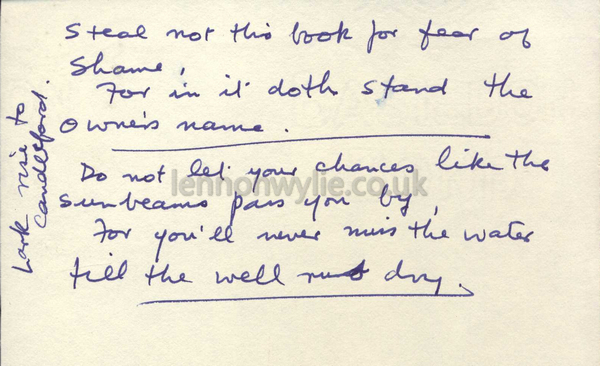 Steal not this book for fear of
Shame,
For in it doth stand the
Owners name.
Do not let your chances like the
Sunbeams pass you by,
For you'll never miss the water
till the well runs dry.
Lark rise to
Candleford.
lennonwylie.co.uk